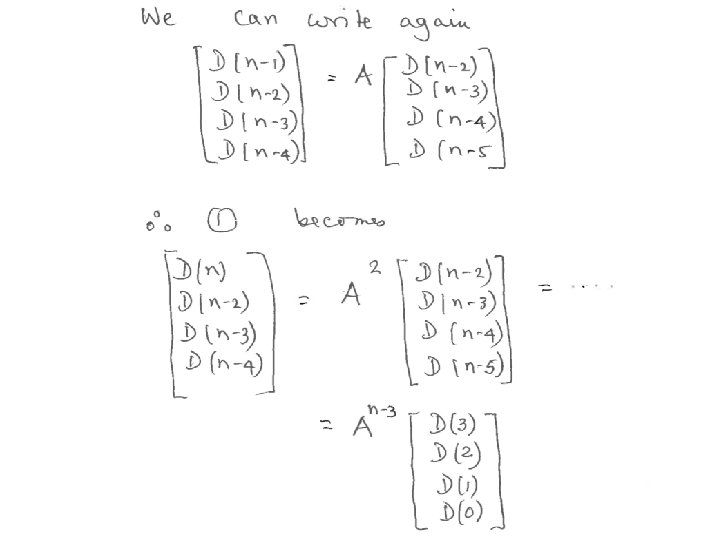 We can write again
[D(n-1) D(n-2) D(n-3) D(n-4)] = A [D(n-2) D(n-3) D(n-4) D(n-5]
∴ ① becomes
[D(n) D(n-2) D(n-3) D(n-4)] = A^2 [D(n-2) D(n-3) D(n-4) D(n-5)] = ....
= A^{n-3} [D(3) D(2) D(1) D(0)]